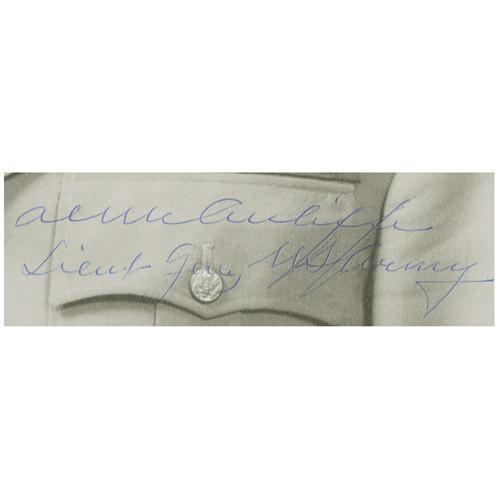 ACMcAuliffe
Lieut Gen, US Army